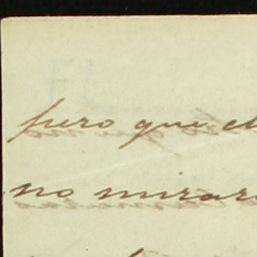 pero que el
no mirar